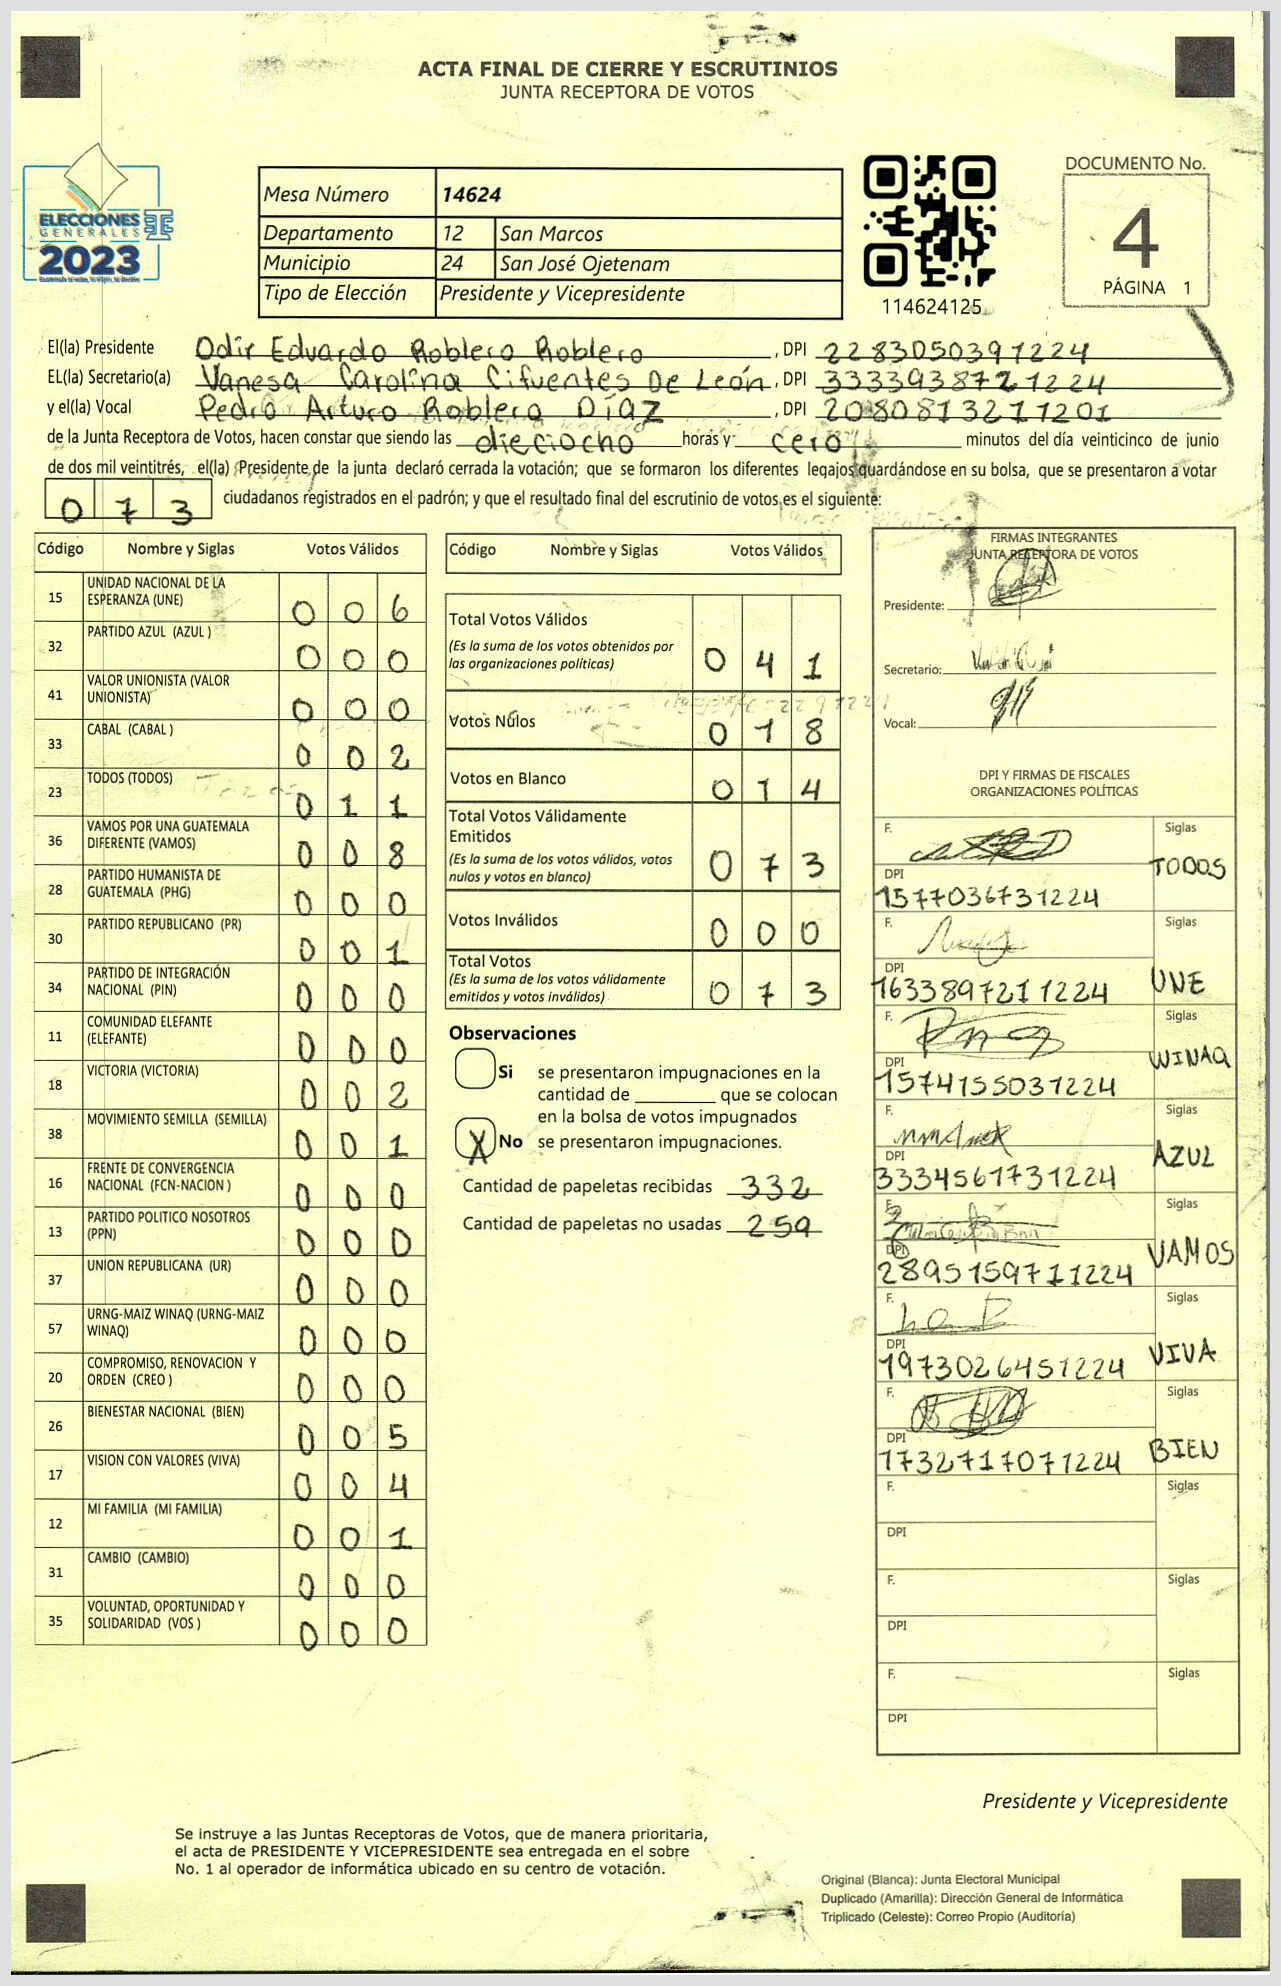 ACTA FINAL DE CIERRE Y ESCRUTINIOS
JUNTA RECEPTORA DE VOTOS
ELECCIONES
GENERALES
2023
Mesa Número 14624
Departamento 12 San Marcos
Municipio 24 San José Ojetenam
Tipo de Elección Presidente y Vicepresidente
114624125
DOCUMENTO No.
4
PÁGINA 1
El(la) Presidente Odir Eduardo Roblero Roblero, DPI 2283050391224
EL(la) Secretario(a) Vanesa Carolina Cifuentes De León, DPI 3333938721224
y el(la) Vocal Pedro Arturo Roblero Díaz, DPI 2080813211201
de la Junta Receptora de Votos, hacen constar que siendo las dieciocho horas y cero minutos del día veinticinco de junio
de dos mil veintitrés, el(la) Presidente de la junta declaró cerrada la votación; que se formaron los diferentes legajos guardándose en su bolsa, que se presentaron a votar
073 ciudadanos registrados en el padrón; y que el resultado final del escrutinio de votos es el siguiente:
Código Nombre y Siglas Votos Válidos
15 UNIDAD NACIONAL DE LA ESPERANZA (UNE) 0 0 6
32 PARTIDO AZUL (AZUL ) 0 0 0
41 VALOR UNIONISTA (VALOR UNIONISTA) 0 0 0
33 CABAL (CABAL ) 0 0 2
23 TODOS (TODOS) 0 1 1
36 VAMOS POR UNA GUATEMALA DIFERENTE (VAMOS) 0 0 8
28 PARTIDO HUMANISTA DE GUATEMALA (PHG) 0 0 0
30 PARTIDO REPUBLICANO (PR) 0 0 1
34 PARTIDO DE INTEGRACIÓN NACIONAL (PIN) 0 0 0
11 COMUNIDAD ELEFANTE (ELEFANTE) 0 0 0
18 VICTORIA (VICTORIA) 0 0 2
38 MOVIMIENTO SEMILLA (SEMILLA) 0 0 1
16 FRENTE DE CONVERGENCIA NACIONAL (FCN-NACION ) 0 0 0
13 PARTIDO POLITICO NOSOTROS (PPN) 0 0 0
37 UNION REPUBLICANA (UR) 0 0 0
57 URNG-MAIZ WINAQ (URNG-MAIZ WINAQ) 0 0 0
20 COMPROMISO, RENOVACION Y ORDEN (CREO ) 0 0 0
26 BIENESTAR NACIONAL (BIEN) 0 0 5
17 VISION CON VALORES (VIVA) 0 0 4
12 MI FAMILIA (MI FAMILIA) 0 0 1
31 CAMBIO (CAMBIO) 0 0 0
35 VOLUNTAD, OPORTUNIDAD Y SOLIDARIDAD (VOS ) 0 0 0
Código Nombre y Siglas Votos Válidos
Total Votos Válidos
(Es la suma de los votos obtenidos por
las organizaciones políticas) 0 4 1
Votos Nulos 0 1 8
Votos en Blanco 0 1 4
Total Votos Válidamente
Emitidos
(Es la suma de los votos válidos, votos
nulos y votos en blanco) 0 7 3
Votos Inválidos 0 0 0
Total Votos
(Es la suma de los votos válidamente
emitidos y votos inválidos) 0 7 3
Observaciones
Si se presentaron impugnaciones en la
cantidad de ________ que se colocan
en la bolsa de votos impugnados
X No se presentaron impugnaciones.
Cantidad de papeletas recibidas 332
Cantidad de papeletas no usadas 259
FIRMAS INTEGRANTES
JUNTA RECEPTORA DE VOTOS
Presidente:
Secretario:
Vocal:
DPI Y FIRMAS DE FISCALES
ORGANIZACIONES POLÍTICAS
F. Siglas
TODOS
DPI
1577036731224
F. Siglas
UNE
DPI
1633897211224
F. Siglas
WINAQ
DPI
1574155031224
F. Siglas
AZUL
DPI
3334561731224
F. Siglas
VAMOS
DPI
2895159711224
F. Siglas
VIVA
DPI
1973026451224
F. Siglas
BIEN
DPI
1732717071224
F. Siglas
DPI
F. Siglas
DPI
F. Siglas
DPI
Presidente y Vicepresidente
Se instruye a las Juntas Receptoras de Votos, que de manera prioritaria,
el acta de PRESIDENTE Y VICEPRESIDENTE sea entregada en el sobre
No. 1 al operador de informática ubicado en su centro de votación.
Original (Blanca): Junta Electoral Municipal
Duplicado (Amarilla): Dirección General de Informática
Triplicado (Celeste): Correo Propio (Auditoría)